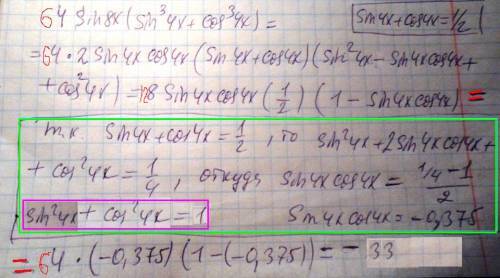 64 sin8x(sin³4x+cos³4x)=
sin4x+cos4x=1/2
=64·2sin4xcos4x(sin4x+cos4x)(sin²4x-sin4xcos4x+
+cos²4x)=128sin4xcos4x(1/2)(1-sin4xcos4x)=
т.к. sin4x+cos4x=1/2, то sin²4x+2sin4xcos4x+
+cos²4x=1/4, откуда sin4xcos4x=(1/4-1)/2
sin²4x+cos²4x=1 sin4xcos4x=-0,375
=64·(-0,375)(1-(-0,375))=-33